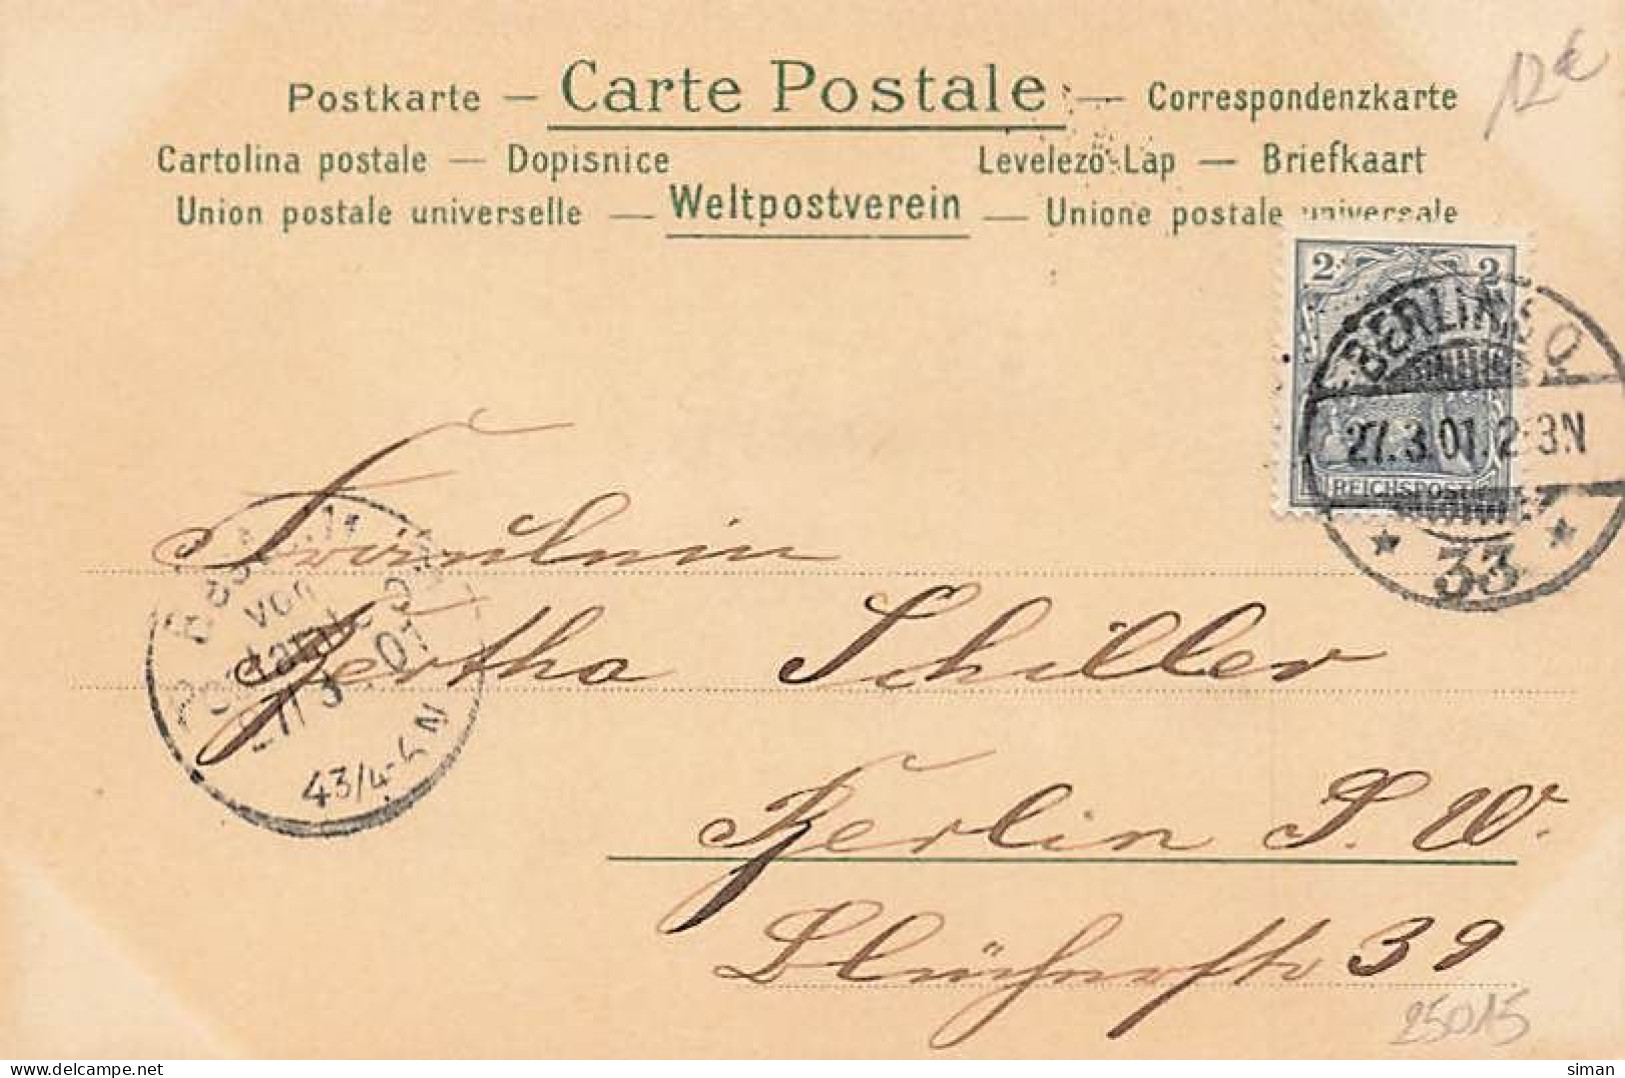 Postkarte — Carte Postale — Correspondenzkarte
12€
Cartolina postale — Dopisnice Levelező-Lap — Briefkaart
Union postale universelle — Weltpostverein — Unione postale universale
2 2
BERLIN S.O.
27.3.01.2-3N
REICHSPOST
* 33 *
Fräulein
Bertha Schiller
Berlin S. W.
Blücherstr 39
Bestellt
vom
Postamte
27/3
43/4-5N
25015
delcampe.net
siman